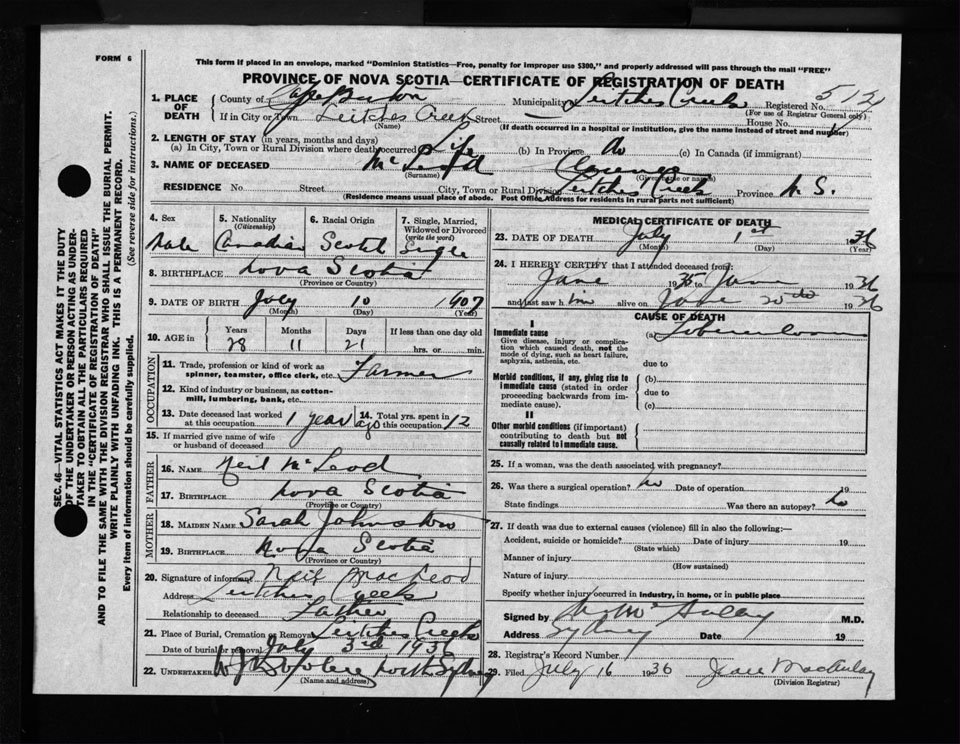 FORM 6
This form if placed in an envelope, marked "Dominion Statistics—Free, penalty for improper use $300," and properly addressed will pass through the mail "FREE"
PROVINCE OF NOVA SCOTIA—CERTIFICATE OF REGISTRATION OF DEATH
1. PLACE OF DEATH County of Cape Breton Municipality Leitches Creek Registered No.
(For use of Registrar General only)
If in City or Town Leitches Creek Street House No.
(Name) (If death occurred in a hospital or institution, give the name instead of street and number)
2. LENGTH OF STAY (in years, months and days)
(a) In City, Town or Rural Division where death occurred Life (b) In Province do (c) In Canada (if immigrant)
3. NAME OF DECEASED McLeod
(Surname) (Given name or names)
RESIDENCE No. Street City, Town or Rural Division Leitches Creek Province N.S.
(Residence means usual place of abode. Post Office Address for residents in rural parts not sufficient)
4. Sex 5. Nationality (Citizenship) 6. Racial Origin 7. Single, Married, Widowed or Divorced (write the word)
Male Canadian Scotch Single
8. BIRTHPLACE Nova Scotia
(Province or Country)
9. DATE OF BIRTH July 10 1907
(Month) (Day) (Year)
10. AGE in Years Months Days If less than one day old
28 11 21 hrs. or min.
OCCUPATION
11. Trade, profession or kind of work as spinner, teamster, office clerk, etc. Farmer
12. Kind of industry or business, as cotton-mill, lumbering, bank, etc.
13. Date deceased last worked at this occupation 1 year ago 14. Total yrs. spent in this occupation 12
15. If married give name of wife or husband of deceased
FATHER
16. NAME Neil McLeod
17. BIRTHPLACE Nova Scotia
(Province or Country)
MOTHER
18. MAIDEN NAME Sarah Johnston
19. BIRTHPLACE Nova Scotia
(Province or Country)
20. Signature of informant Neil MacLeod
Address Leitches Creek
Relationship to deceased Father
21. Place of Burial, Cremation or Removal Leitches Creek
Date of burial or removal July 3rd 1936
22. UNDERTAKER North Sydney
(Name and address)
MEDICAL CERTIFICATE OF DEATH
23. DATE OF DEATH July 1st 1936
(Month) (Day) (Year)
24. I HEREBY CERTIFY that I attended deceased from:
June 1935 to June 1936
and last saw him alive on June 1936
CAUSE OF DEATH
I
Immediate cause (a) Tuberculosis
Give disease, injury or complication which caused death, not the mode of dying, such as heart failure, asphyxia, asthenia, etc.
due to
Morbid conditions, if any, giving rise to immediate cause (stated in order proceeding backwards from immediate cause).
(b)
due to
(c)
II
Other morbid conditions (if important) contributing to death but not causally related to immediate cause.
25. If a woman, was the death associated with pregnancy?
26. Was there a surgical operation? no Date of operation 19
State findings Was there an autopsy? no
27. If death was due to external causes (violence) fill in also the following:—
Accident, suicide or homicide? Date of injury 19
(State which)
Manner of injury
(How sustained)
Nature of injury
Specify whether injury occurred in Industry, in home, or in public place
Signed by M.D.
Address Sydney Date 19
28. Registrar's Record Number
29. Filed July 16 1936
(Division Registrar)
SEC. 46—VITAL STATISTICS ACT MAKES IT THE DUTY OF THE UNDERTAKER OR PERSON ACTING AS UNDERTAKER TO OBTAIN ALL THE PARTICULARS REQUIRED IN THE "CERTIFICATE OF REGISTRATION OF DEATH"
AND TO FILE THE SAME WITH THE DIVISION REGISTRAR WHO SHALL ISSUE THE BURIAL PERMIT.
WRITE PLAINLY WITH UNFADING INK. THIS IS A PERMANENT RECORD.
Every item of information should be carefully supplied. (See reverse side for instructions.)